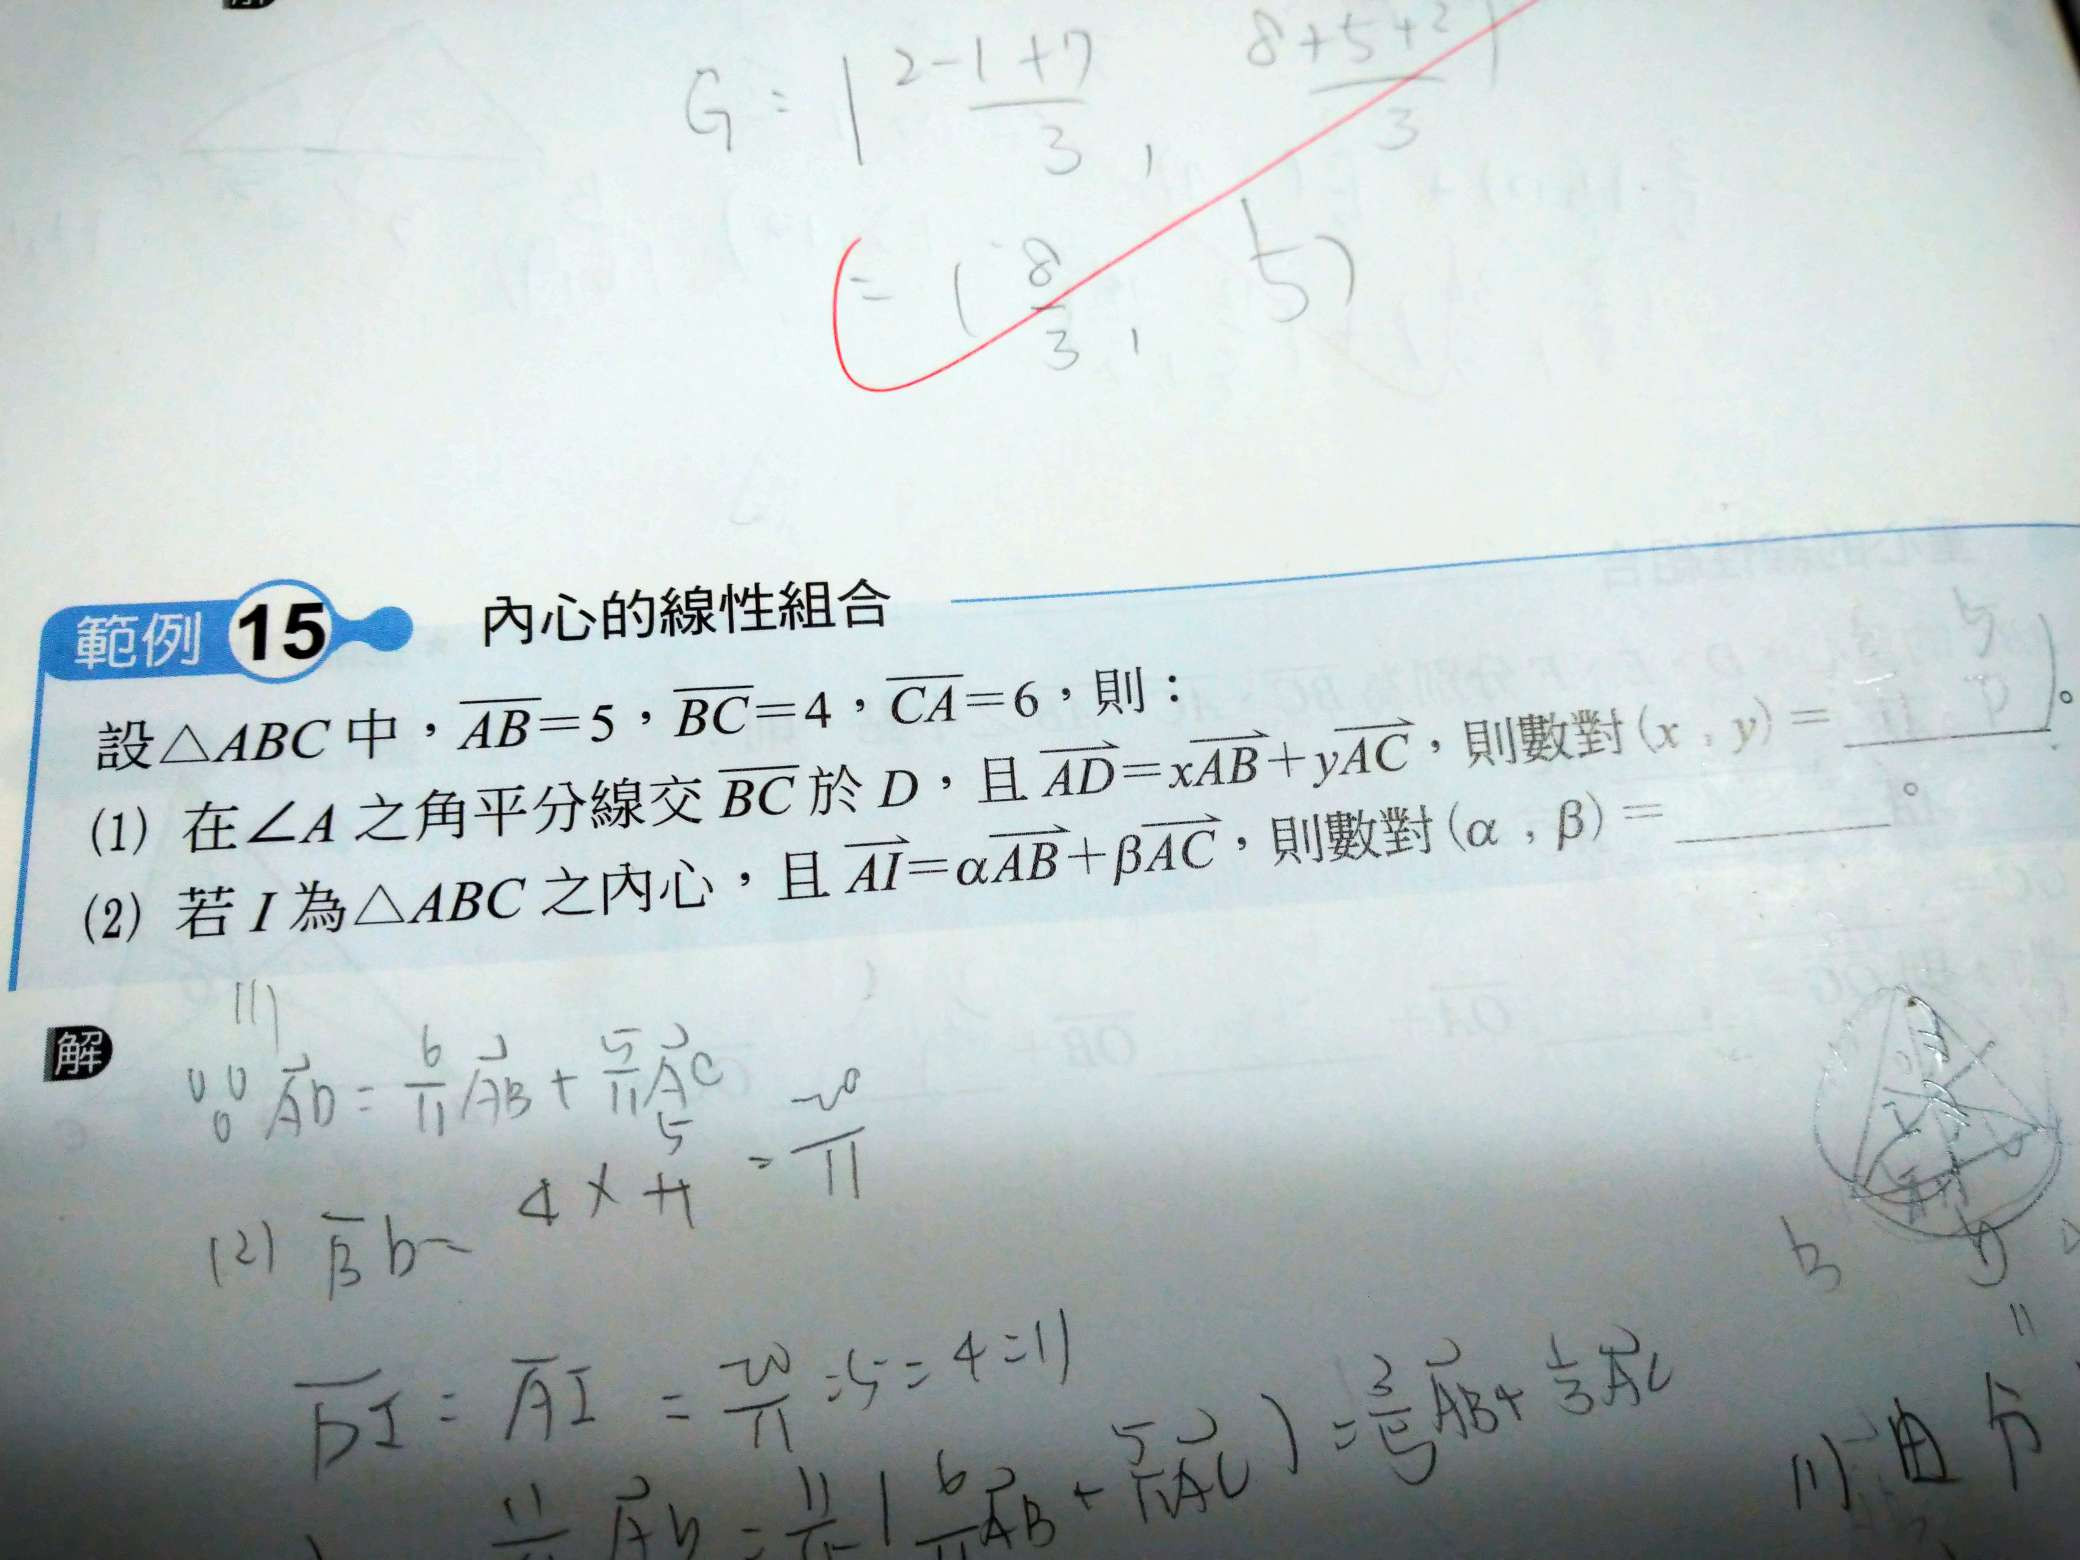 G = ( 2-1+7 / 3 , 8+5+2 / 3 )
= ( 8/3 , 5 )
範例 15 內心的線性組合
設△ABC 中，AB=5，BC=4，CA=6，則：
(1) 在∠A 之角平分線交 BC 於 D，且 AD=xAB+yAC，則數對(x , y)=。
(2) 若 I 為△ABC 之內心，且 AI=αAB+βAC，則數對(α , β)=。
解
(1)
AD = 6/11 AB + 5/11 AC
(2) 4 × 5/11 = 20/11
DI : AI = 20/11 : 5 = 4 : 11
11/15 = 11/15 ( 6/11 AB + 5/11 AC ) = 2/5 AB + 1/3 AC
(1) 由